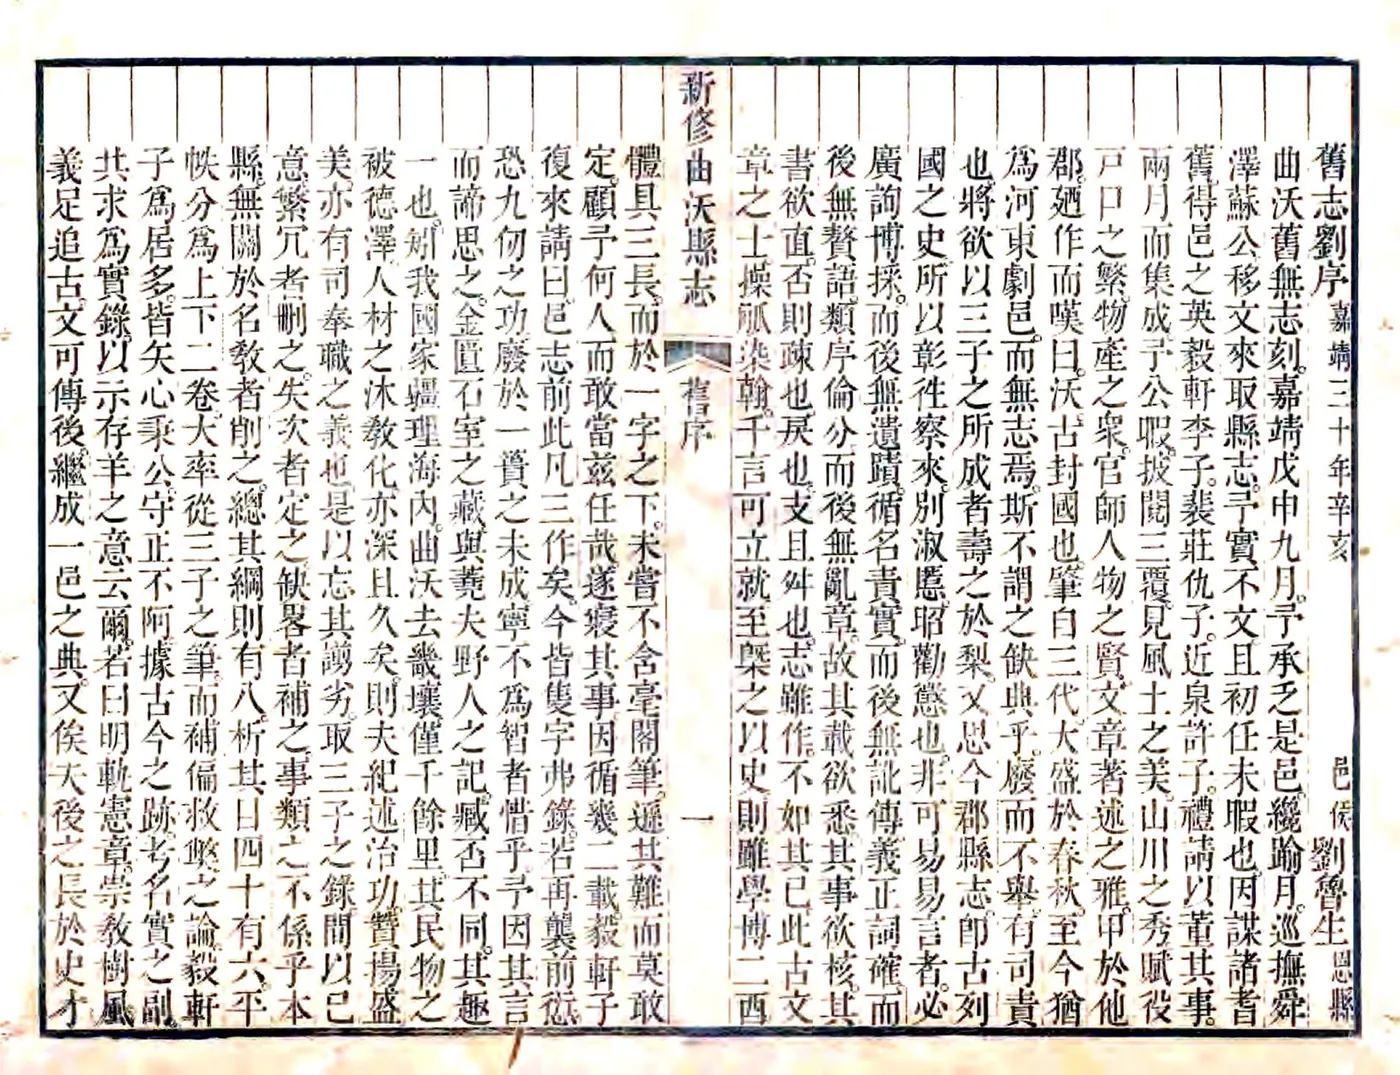 舊志劉序 嘉靖三十年辛亥 邑侯 劉魯生 恩縣
曲沃舊無志刻。嘉靖戊申九月。予承乏是邑。纔踰月。巡撫舜
澤蘇公移文來取縣志。予實不文且初任未暇也。因謀諸耆
舊。得邑之英毅軒李子。裴莊仇子。近泉許子。禮請以董其事。
兩月而集成。予公暇。披閱三覆。見風土之美。山川之秀。賦役
戸口之繁。物產之衆。官師人物之賢。文章著述之雅。甲於他
郡。廼作而嘆曰。沃古封國也。肇自三代。大盛於春秋。至今猶
爲河東劇邑。而無志焉。斯不謂之缺典乎。廢而不舉。有司責
也。將欲以三子之所成者壽之於梨。又思今郡縣志。即古列
國之史。所以彰往察來。別淑慝。昭勸懲也。非可易易言者。必
廣詢博採。而後無遺蹟。循名責實。而後無訛傳。義正詞確。而
後無贅語。類序倫分。而後無亂章。故其載欲悉。其事欲核。其
書欲直。否則疎也。戾也。支且舛也。志雖作。不如其已。此古文
章之士。操觚染翰。千言可立就。至槩之以史。則雖學博二酉
新修曲沃縣志 舊序 一
體具三長。而於一字之下。未嘗不含毫閣筆。遜其難而莫敢
定。顧予何人而敢當茲任哉。遂寢其事。因循幾二載。毅軒子
復來請曰。邑志前此凡三作矣。今皆隻字弗錄。若再襲前愆。
恐九仞之功。廢於一簣之未成。寧不爲智者惜乎。予因其言
而諦思之。金匱石室之藏。與蕘夫野人之記。臧否不同。其趣
一也。矧我國家疆理海內。曲沃去畿壤。僅千餘里。其民物之
被德澤。人材之沐敎化。亦深且久矣。則夫紀述治功。贊揚盛
美。亦有司奉職之義也。是以忘其謭劣。取三子之錄。間以己
意。繁冗者刪之。失次者定之。缺畧者補之。事類之不係乎本
縣。無關於名敎者削之。總其綱則有八。析其目四十有六。平
帙分爲上下二卷。大率從三子之筆。而補偏救弊之論。毅軒
子爲居多。皆矢心秉公。守正不阿。據古今之跡。考名實之副。
共求爲實錄。以示存羊之意云爾。若曰明軌憲章。崇敎樹風。
義足追古。文可傳後。繼成一邑之典。又俟夫後之長於史才